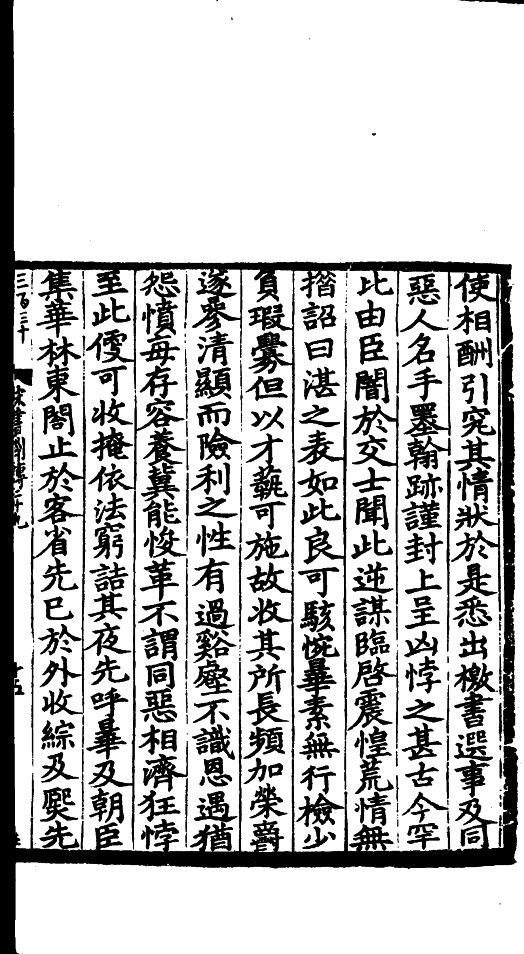 使相酬引究其情狀於是悉出檄書選事及同
惡人名手墨翰跡謹封上呈凶悖之甚古今罕
比由臣闇於交士聞此逆謀臨啓震惶荒情無
措詔曰湛之表如此良可駭惋曅素無行檢少
負瑕舋但以才藝可施故收其所長頻加榮爵
遂參清顯而險利之性有過谿壑不識恩遇猶
怨憤每存容養冀能悛革不謂同惡相濟狂悖
至此便可收掩依法窮詰其夜先呼曅及朝臣
集華林東閣止於客省先已於外收綜及熙先
三百三十
宋書列傳二十九
十五